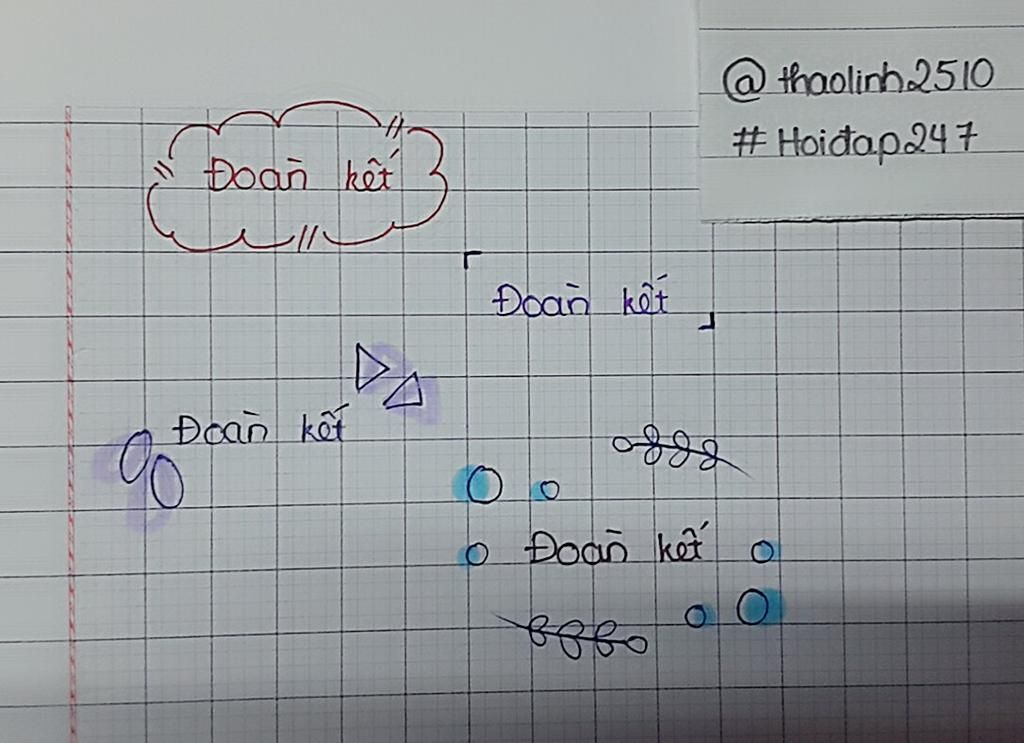 @thaolinh2510
#Hoiđap247
Đoàn kết
Đoàn kết
Đoàn kết
Đoàn kết